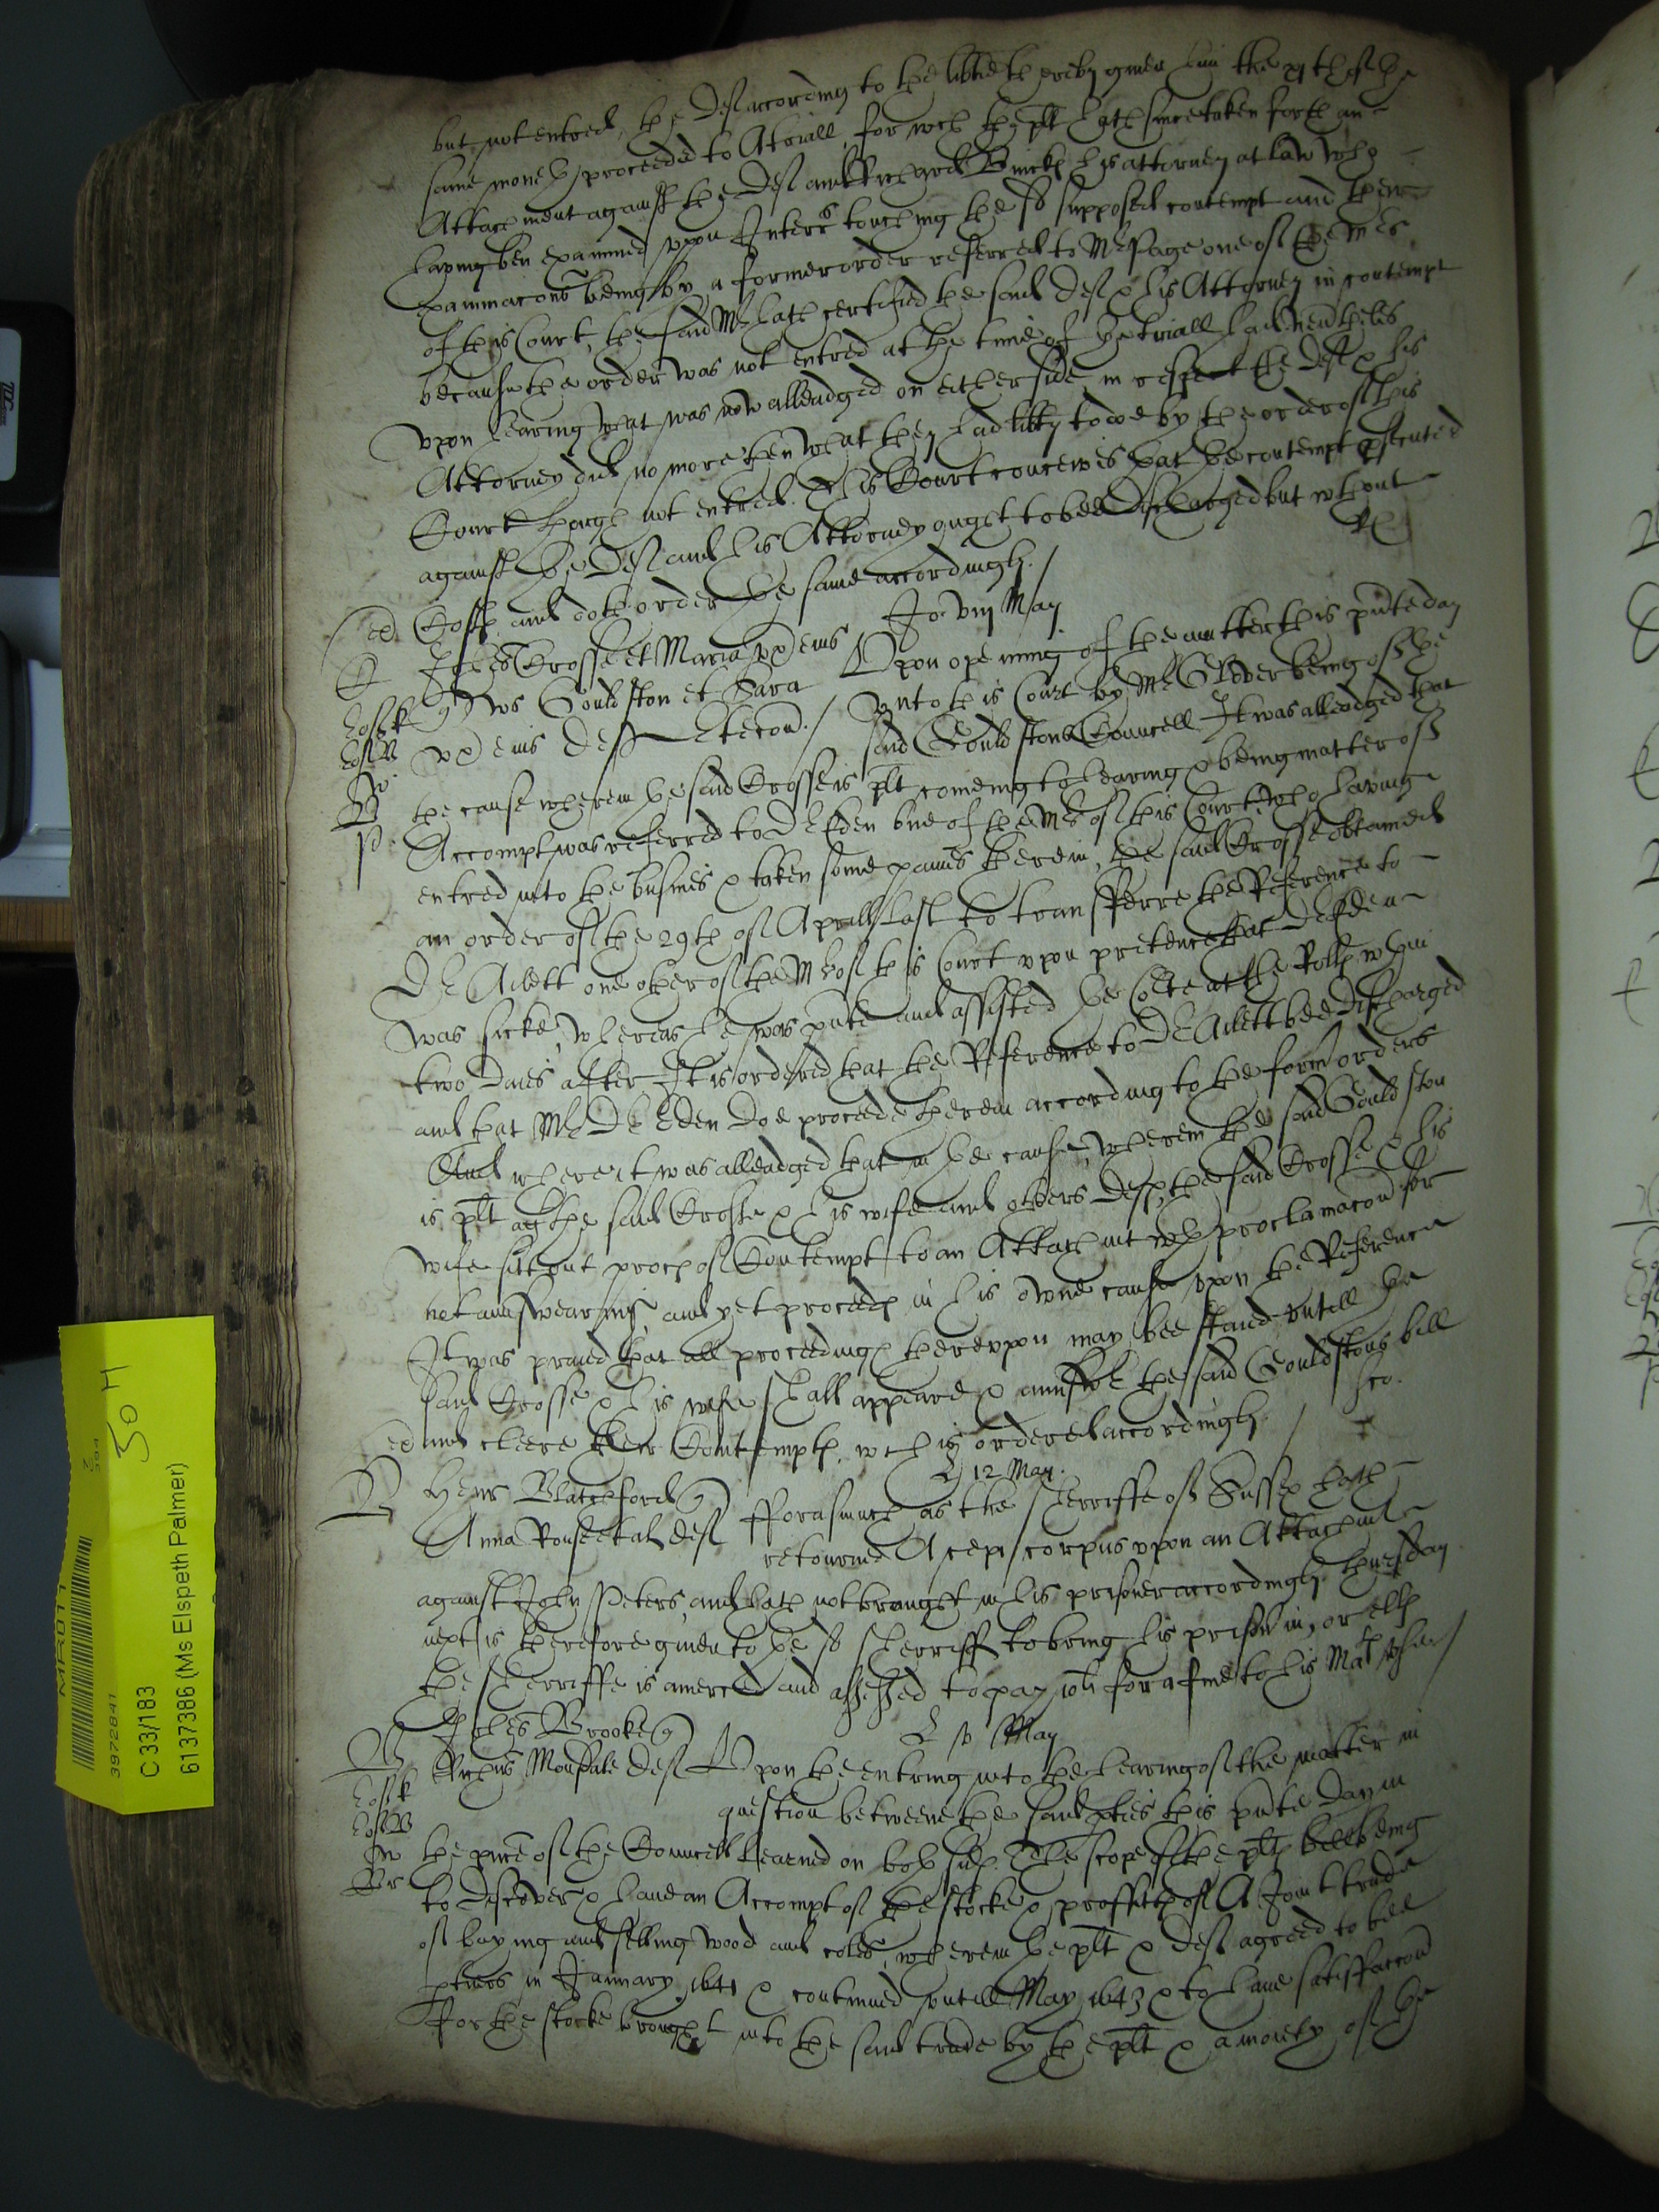 but not entred, the Def according to the libtie thereby given him the
same money proceeded to A triall for wch the plt hath since taken forth an
Attachment against the Def and Richard his attorney at law who
having ben examined upon Interr touching the sd supposed contempt and their
examinacons being by a former order referred to Mr Page one of the Mrs
of this Court, the said Mr hath certified the said Def & his Attorney in contempt
because the order was not entred at the time of the triall had,
upon hearing what was now alleadged on either side, in respect the Deft & his
Attorney did no more then what they had libty to doe by the order of this
Court though not entred. This Court conceives that the contempt psecuted
against the Def and his Attorney ought to bee discharged but wthout
Costs and doth order the same accordingly. /
Jo viij May
Johes Crosse et Maria ux eius Upon opening of the matter this pnte day
Gouldston et Sara unto this Court by Mr Glover being of the
ux eius Def et econ. / said Gouldstons Councell It was alleadged that
the cause wherein the said Crosse is plt comeing to hearing & being matter of
Accompt was referred to Dr Eden one of the Mrs of this Court, who having
entred into the busines & taken some paines therein, the said Crosse obtained
an order of the 29th of Aprill last to transferre the Reference to
Dr Ailett one other of the Mrs of this Court upon pretence that Dr Eden
was sicke, whereas he was pnte and assisted the Corte at the Rolls wthin
two daies after It is ordered that the Reference to Dr Ailett bee discharged
and that Mr Dr Eden doe proceede therein according to the form orders
And where it was alleadged that in the cause, wherein the said Gouldston
is plt agt the said Crosse & his wife and others Defts, the said Crosse & his
wife sitt out proces of Contempt to an Attachmt wth proclamacon for
not answearing, and yet proceeds in his owne cause upon the Reference
It was praied that all proceedings thereupon may bee staied untill the
said Crosse & his wife shall appeare & answere the said Gouldstons bill
and cleere their Contempts, wch is ordered accordingly. /
12 May.
Henr Blatchford Forasmuch as the sherriffe of Sussex hath
Anna Rous et al def retourned A cepi corpus upon an Attachmt
against John Peters, and hath not brought in his prisoner accordingly thursday
next is therefore given to the sd sherriff to bring his prisoner in, or ells
the sherriffe is amerced and assessed to pay for a fine to his Matie use /
Johes Brooke May
Def Upon the entring into the hearing of the matter in
question betweene the said pties this pnte day in
the pnce of the Councell learned on both sides. The scope of the plts bill being
to discover & have an Accompt of the stocke & proffitts of A Joint trade
of buying and selling wood and coles, wherein the plt & def agreed to bee
ptners in January 1641 & continued untill May 1643 & to have satisfaccon
For the stocke brought into the said trade by the plt & a moiety of the
MR011
39728441
C 33/183
6137386 (Ms Elspeth Palmer)
50 H